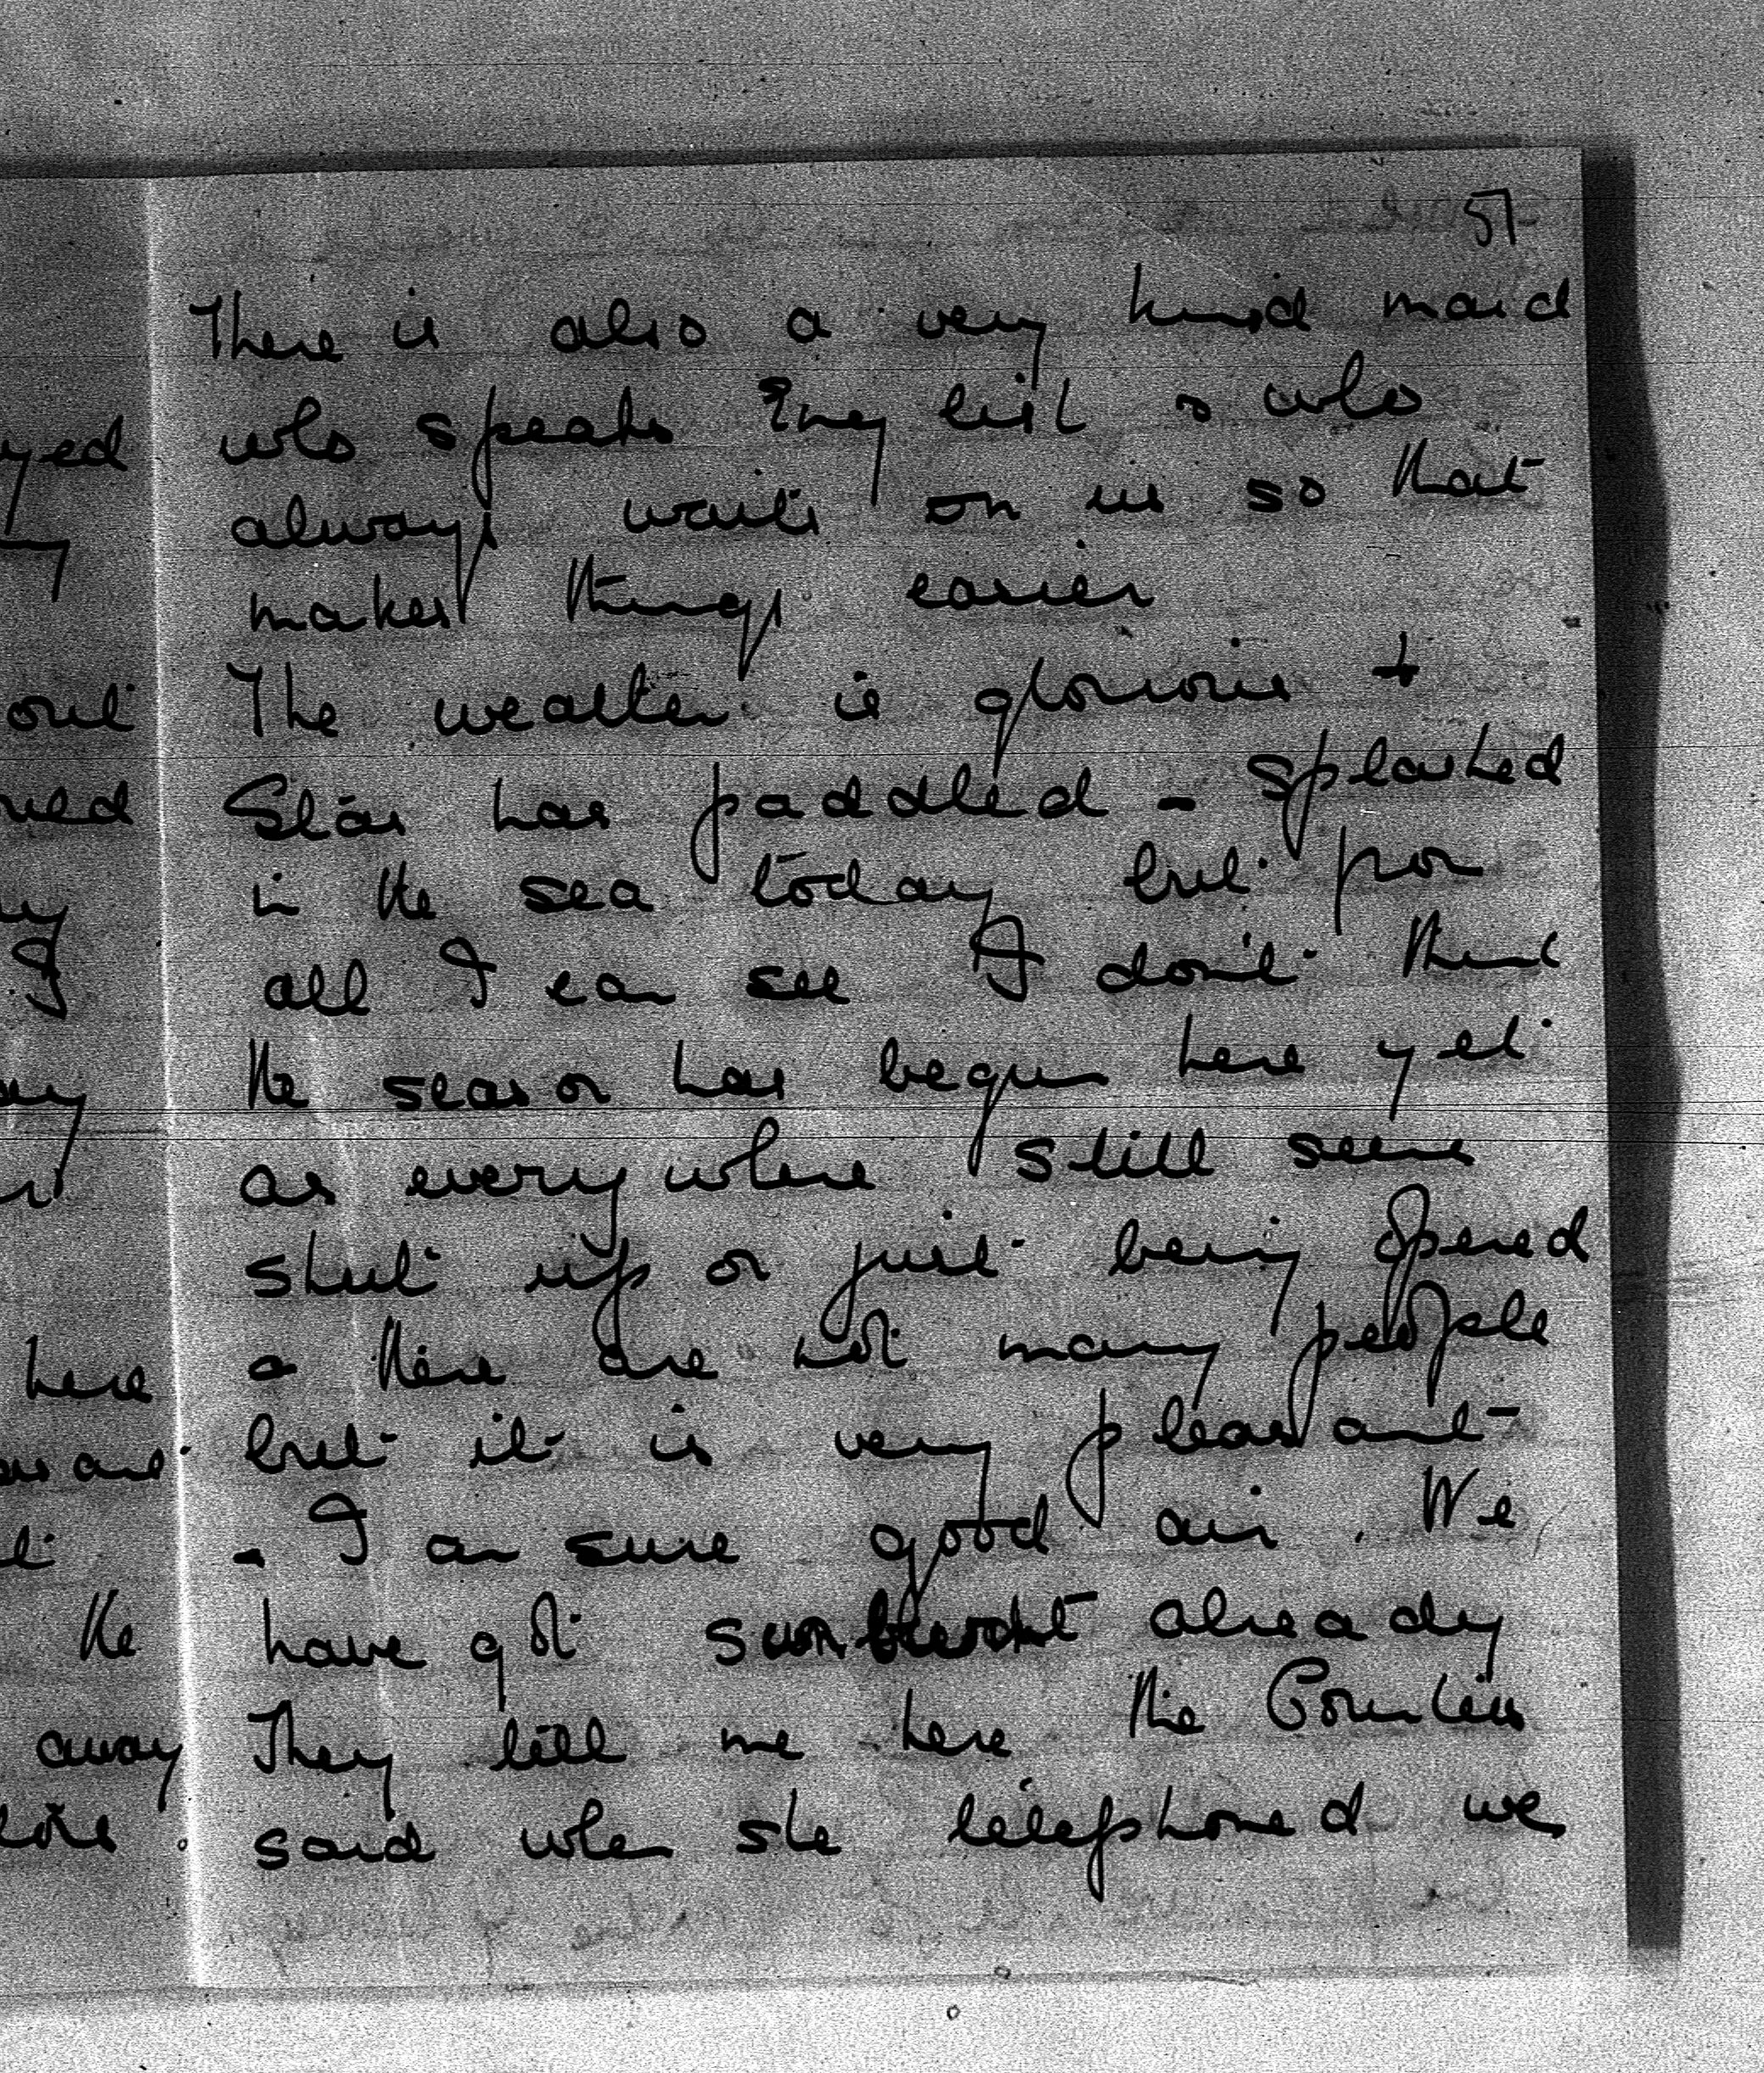 51
There is also a very kind maid
who speaks English & who
always waits on us so that
makes things easier
The weather is glorious +
has paddled & splashed
in the sea today but from
all I can see I don't think
the season has begun here yet
as everywhere still seems
shut up or just being opened
& there are not many people
but it is very pleasant
& I am sure good air. We
have got sunburnt already
They tell me here the Countess
said when she telephoned we
yed
out
I
here
the
away